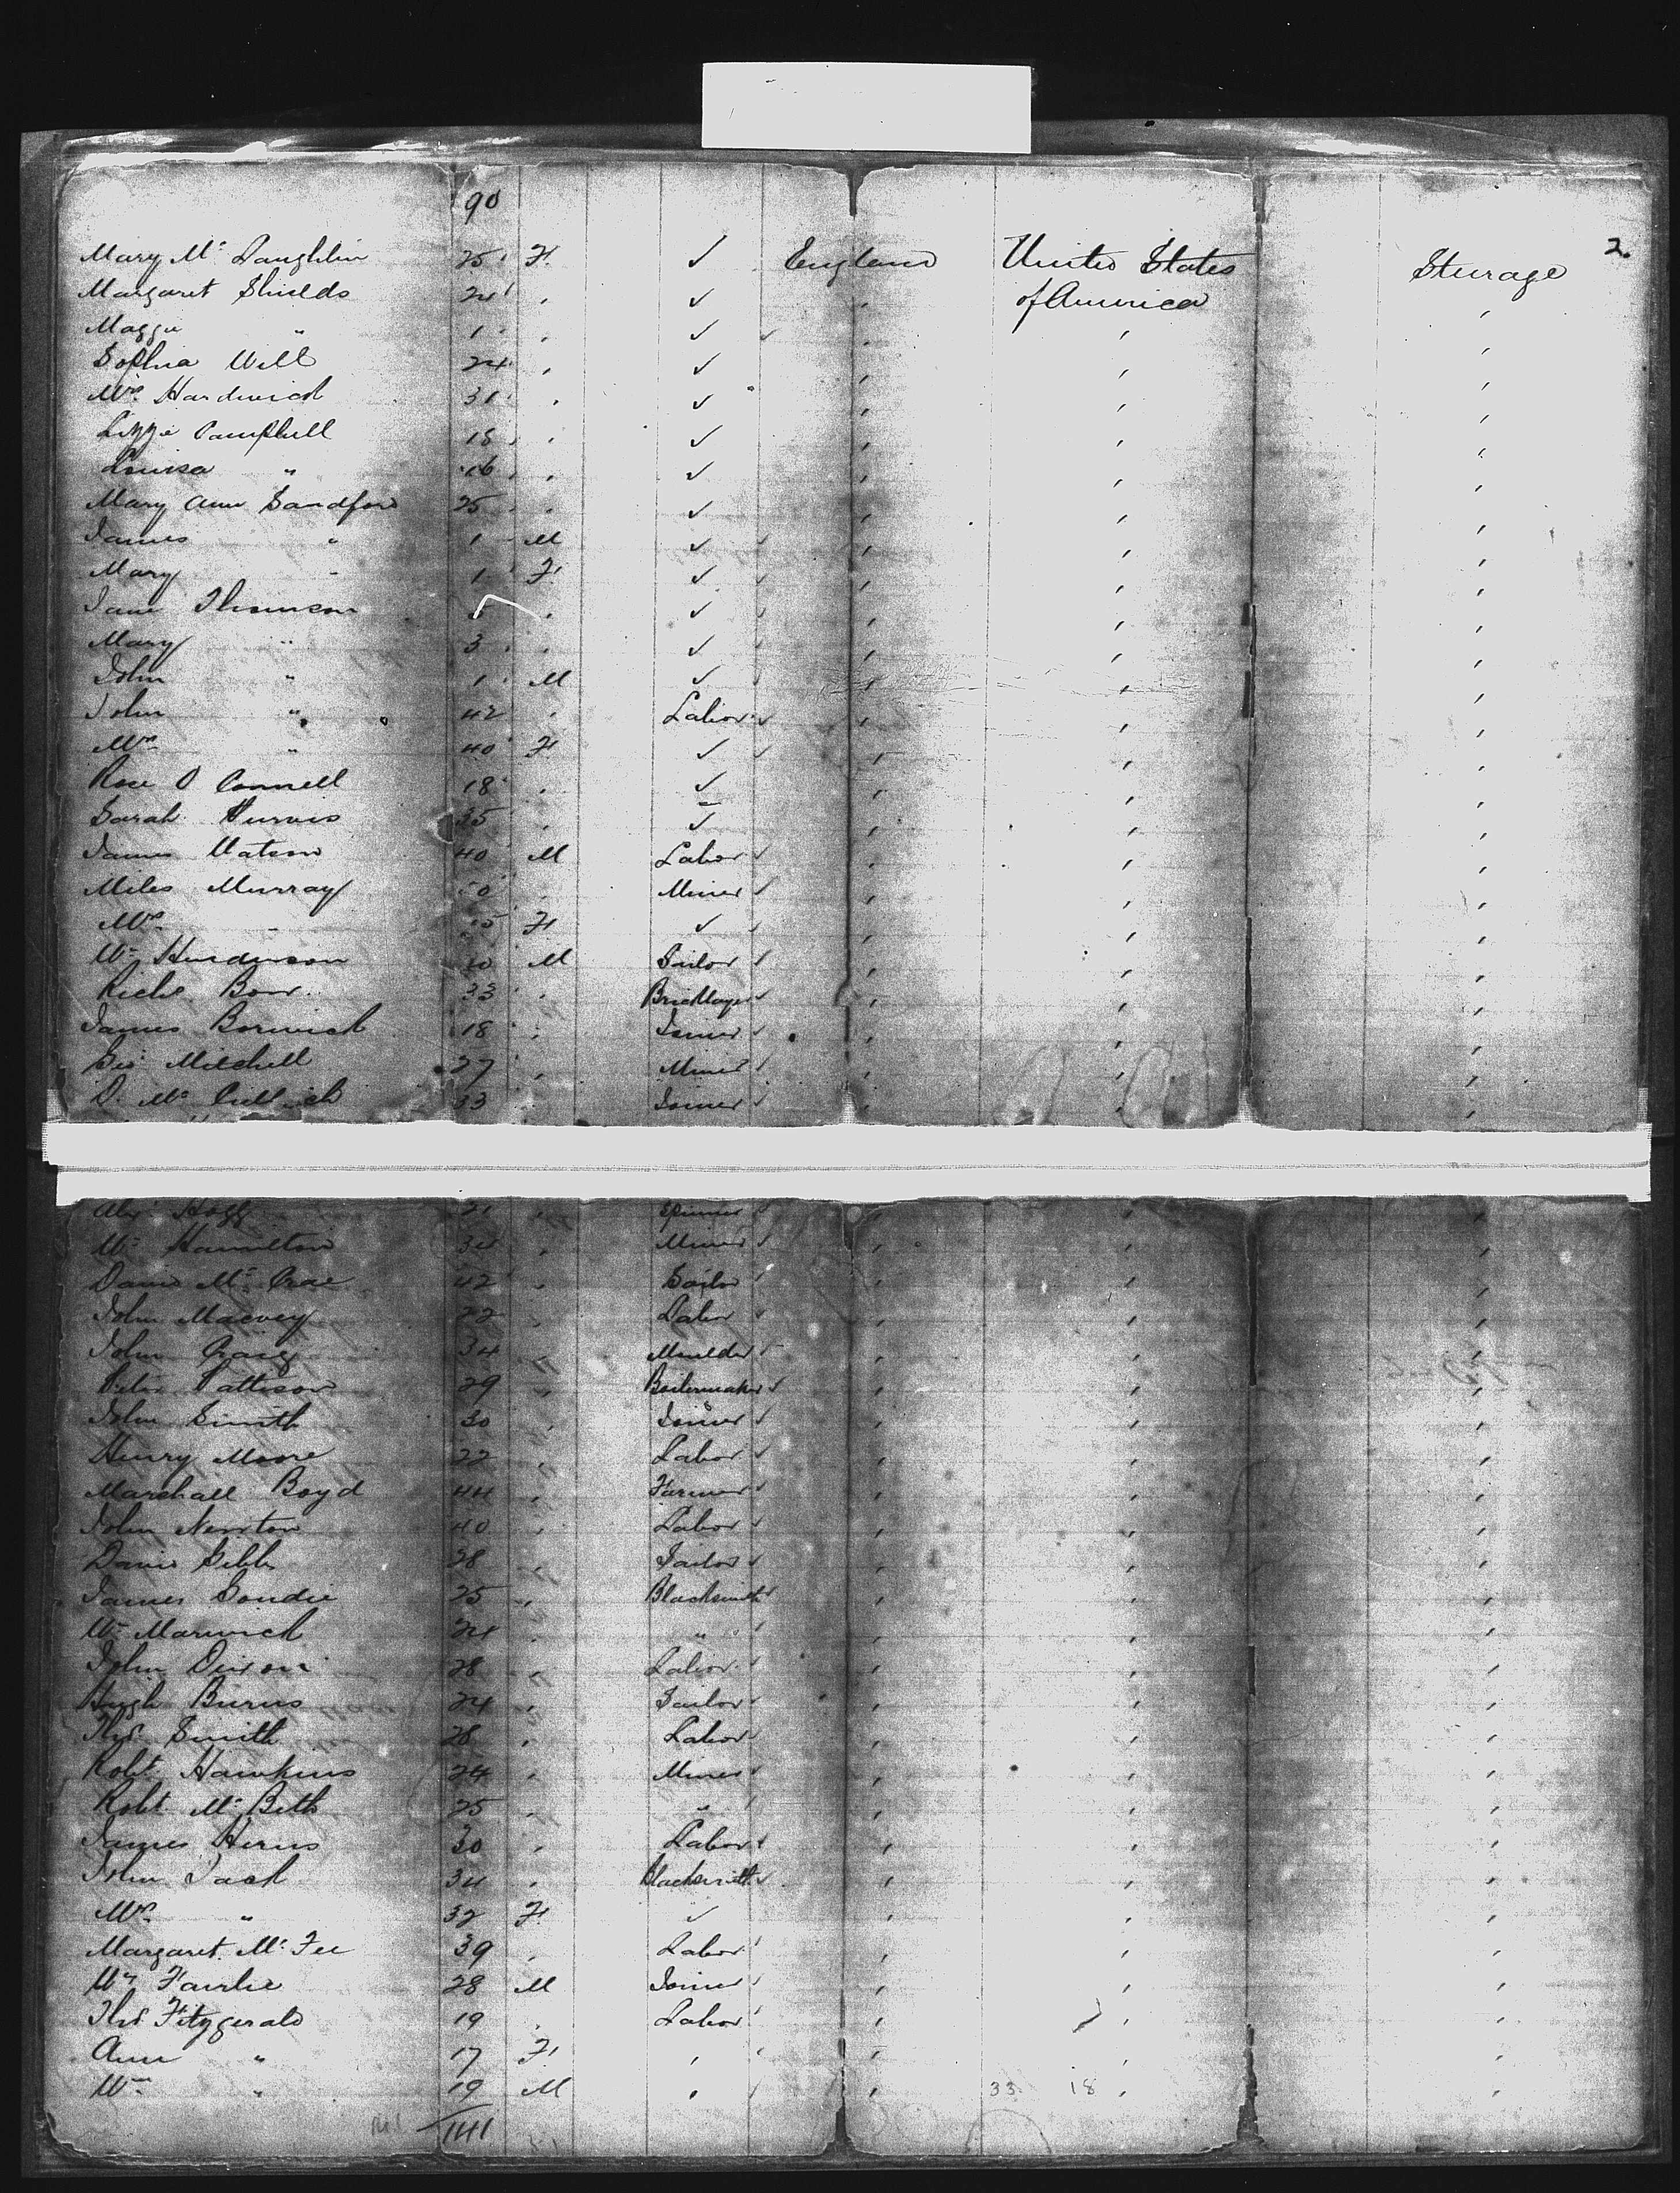 90
2.
Mary Mc Laughlin 25 F. ✓ England United States Steerage
Margaret Shields 24 , ✓ , of America ,
Maggie " 1 , ✓ , , ,
Sophia Will 24 , ✓ , , ,
Mrs Hardwick 31 , ✓ , , ,
Lizzie Campbell 18 , ✓ , , ,
Louisa " 16 , ✓ , , ,
Mary Ann Sandford 25 , ✓ , , ,
James " 1 M ✓ , , ,
Mary " 1 F. ✓ , , ,
Jane Thomson , ✓ , , ,
Mary " 3 , ✓ , , ,
John " 1 M ✓ , , ,
John " 42 , Labor , , ,
Mrs " 40 F ✓ , , ,
Rose O Connell 18 , ✓ , , ,
Sarah , ✓ , , ,
James Watson 40 M Labor , , ,
Miles Murray , Miner , , ,
Mrs " F ✓ , , ,
Wm Henderson M Sailor , , ,
Richd Bow 33 , Bricklayer , , ,
James Borwick 18 , Joiner , , ,
Geo Mitchell 27 , Miner , , ,
D. Mc 33 , Joiner , , ,
Alexr Hogg 21 , Spinner , , ,
Wm Hamilton 34 , Miner , , ,
David Mc Crae 42 , Sailor , , ,
John Macvey 22 , Labor , , ,
John Craig 34 , Moulder , , ,
Peter Pattison 29 , Boilermaker , , ,
John Smith 30 , Joiner , , ,
Henry Moore 22 , Labor , , ,
Marshall Boyd 44 , Farmer , , ,
John Newton 40 , Labor , , ,
David Gibb 28 , Tailor , , ,
James Goudie 25 , Blacksmith , , ,
Wm Marwick 24 , " , , ,
John Dixon 28 , Labor , , ,
Hugh Burns 24 , Sailor , , ,
Thos Smith 28 , Labor , , ,
Robt Hawkins 24 , Miner , , ,
Robt Mc Beth 25 , " , , ,
James 30 , Labor , , ,
John Jack 34 , Blacksmith , , ,
Mrs " 32 F. ✓ , , ,
Margaret Mc Fee 39 , Labor , , ,
Wm Fairlie 28 M Joiner , , ,
Thos Fitzgerald 19 , Labor , , ,
Ann " 17 F. , , , ,
Wm " 19 M , , 33 18 , ,
141 141